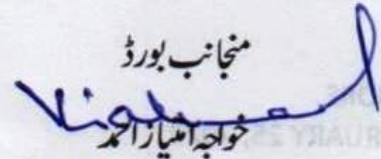 منجانب بورڈ
خواجہ امتیاز احمد